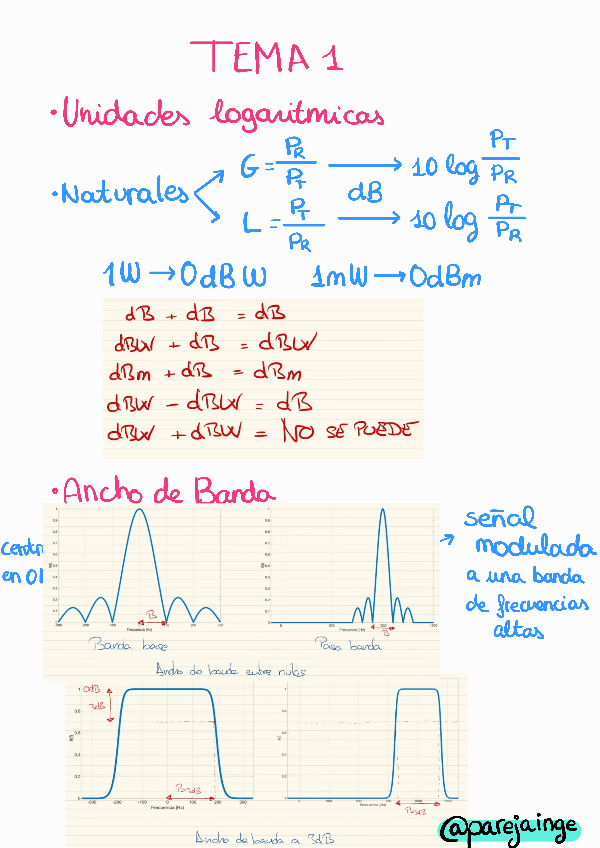 TEMA 1
• Unidades logarítmicas
• Naturales
G = P_R / P_T → 10 log P_T / P_R
dB
L = P_T / P_R → 10 log P_T / P_R
1W → 0dBW 1mW → 0dBm
dB + dB = dB
dBW + dB = dBW
dBm + dB = dBm
dBW - dBW = dB
dBW + dBW = NO SE PUEDE
• Ancho de Banda
señal
modulada
a una banda
de frecuencias
altas
en 0!
B
Frecuencia (Hz)
Banda base
B
Frecuencia (Hz)
Paso banda
Ancho de banda entre nulos
0dB
3dB
B-3dB
-100 0 100 200
Frecuencia (Hz)
B-3dB
Frecuencia (Hz)
Ancho de banda a 3dB
@parejainge